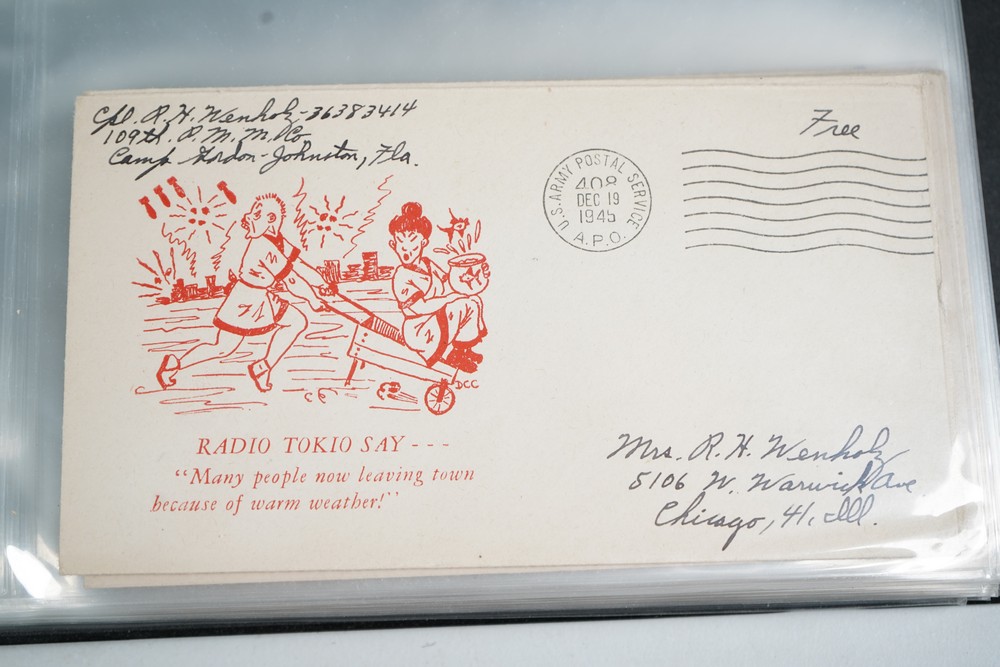 Cpl. R. H. Wenholz - 36383414
109th. P. M. M. Co
Camp Gordon-Johnston, Fla.
Free
U.S. ARMY POSTAL SERVICE
408
DEC 19
1945
A.P.O.
DCC
RADIO TOKIO SAY - - -
"Many people now leaving town
because of warm weather!"
Mrs. R. H. Wenholz
5106 W. Warwick Ave
Chicago, 41, Ill.